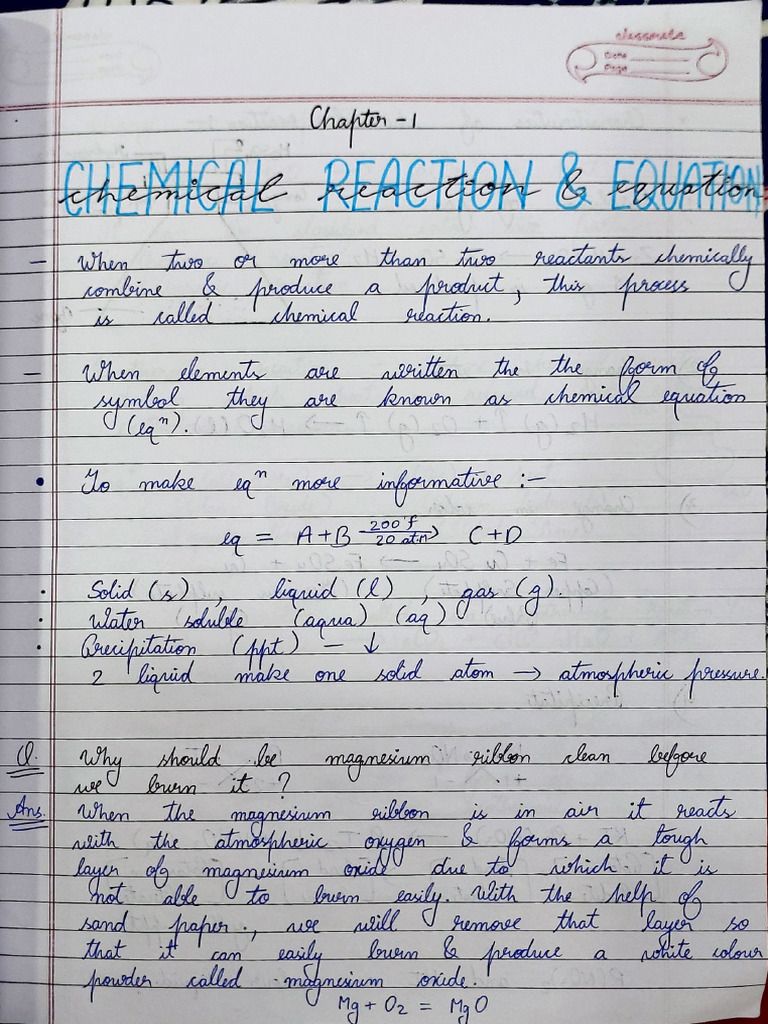 classmate
Date
Page
Chapter - 1
CHEMICAL REACTION & EQUATION
chemical reaction & equation
– When two or more than two reactants chemically
combine & produce a product, this process
is called chemical reaction.
– When elements are written the the form of
symbol they are known as chemical equation
(eqⁿ).
• To make eqⁿ more informative :–
eq = A+B 200 f / 20 atm → C+D
• Solid (s), liquid (l), gas (g).
• Water soluble (aqua) (aq)
• Precipitation (ppt) – ↓
2 liquid make one solid atom → atmospheric pressure.
Q. Why should be magnesium ribbon clean before
we burn it ?
Ans. When the magnesium ribbon is in air it reacts
with the atmospheric oxygen & forms a tough
layer of magnesium oxide due to which it is
not able to burn easily. With the help of
sand paper, we will remove that layer so
that it can easily burn & produce a white colour
powder called magnesium oxide.
Mg + O₂ = MgO